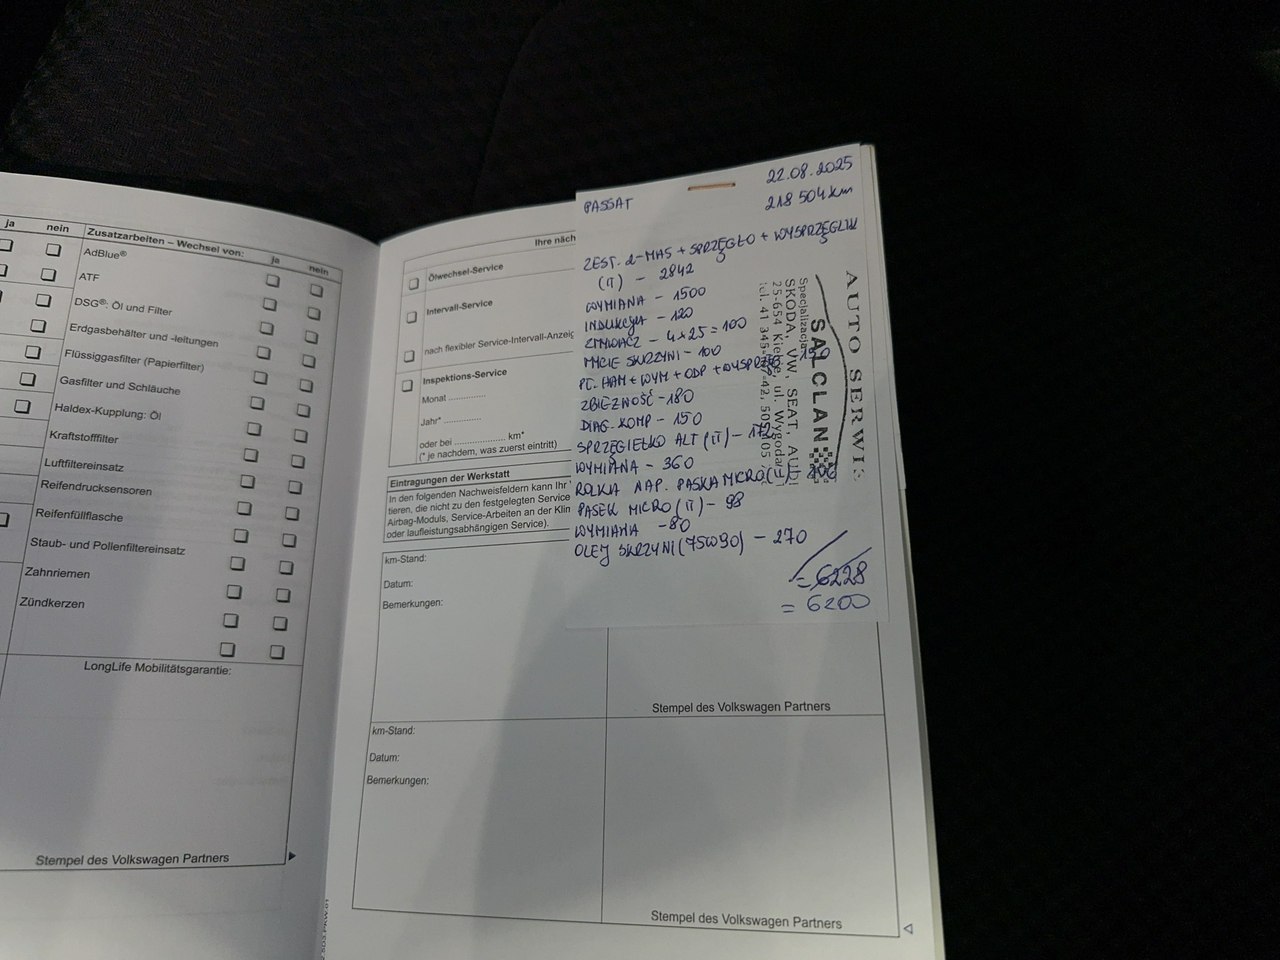 ja nein
Zusatzarbeiten – Wechsel von: ja nein
AdBlue®
ATF
DSG®- Öl und Filter
Erdgasbehälter und -leitungen
Flüssiggasfilter (Papierfilter)
Gasfilter und Schläuche
Haldex-Kupplung: Öl
Kraftstofffilter
Luftfiltereinsatz
Reifendrucksensoren
Reifenfüllflasche
Staub- und Pollenfiltereinsatz
Zahnriemen
Zündkerzen
LongLife Mobilitätsgarantie:
Stempel des Volkswagen Partners
Ihre näch
Ölwechsel-Service
Intervall-Service
nach flexibler Service-Intervall-Anzeig
Inspektions-Service
Monat ..............
Jahr* ..............
oder bei .................... km*
(* je nachdem, was zuerst eintritt)
Eintragungen der Werkstatt
In den folgenden Nachweisfeldern kann Ihr
tieren, die nicht zu den festgelegten Service
Airbag-Moduls, Service-Arbeiten an der Klim
oder laufleistungsabhängigen Service).
km-Stand:
Datum:
Bemerkungen:
Stempel des Volkswagen Partners
km-Stand:
Datum:
Bemerkungen:
Stempel des Volkswagen Partners
22.08.2025
PASSAT 218 504 km
ZEST. d-MAS + SPRZĘGŁO + WYSPRZĘGLIK
(IT) - 2842
WYMIANA - 1500
INDUKCJA - 120
ZMYWACZ - 4x25=100
MYCIE SKRZYNI - 100
PŁ. HAM + WYM + ODP +
ZBIEŻNOŚĆ - 180
DIAG. KOMP - 150
SPRZĘGIEŁKO ALT (IT) -
WYMIANA - 360
ROLKA NAP. PASKA MICRO
PASEK MICRO (IT) - 98
WYMIANA - 80
OLEJ SKRZYNI (75W90) - 270
= 6228
= 6200
AUTO SERWIS
SALCLAN
Specjalizacja
SKODA, VW, SEAT, AUDI
25-654 Kielce, ul. Wygodna
tel. 41 345